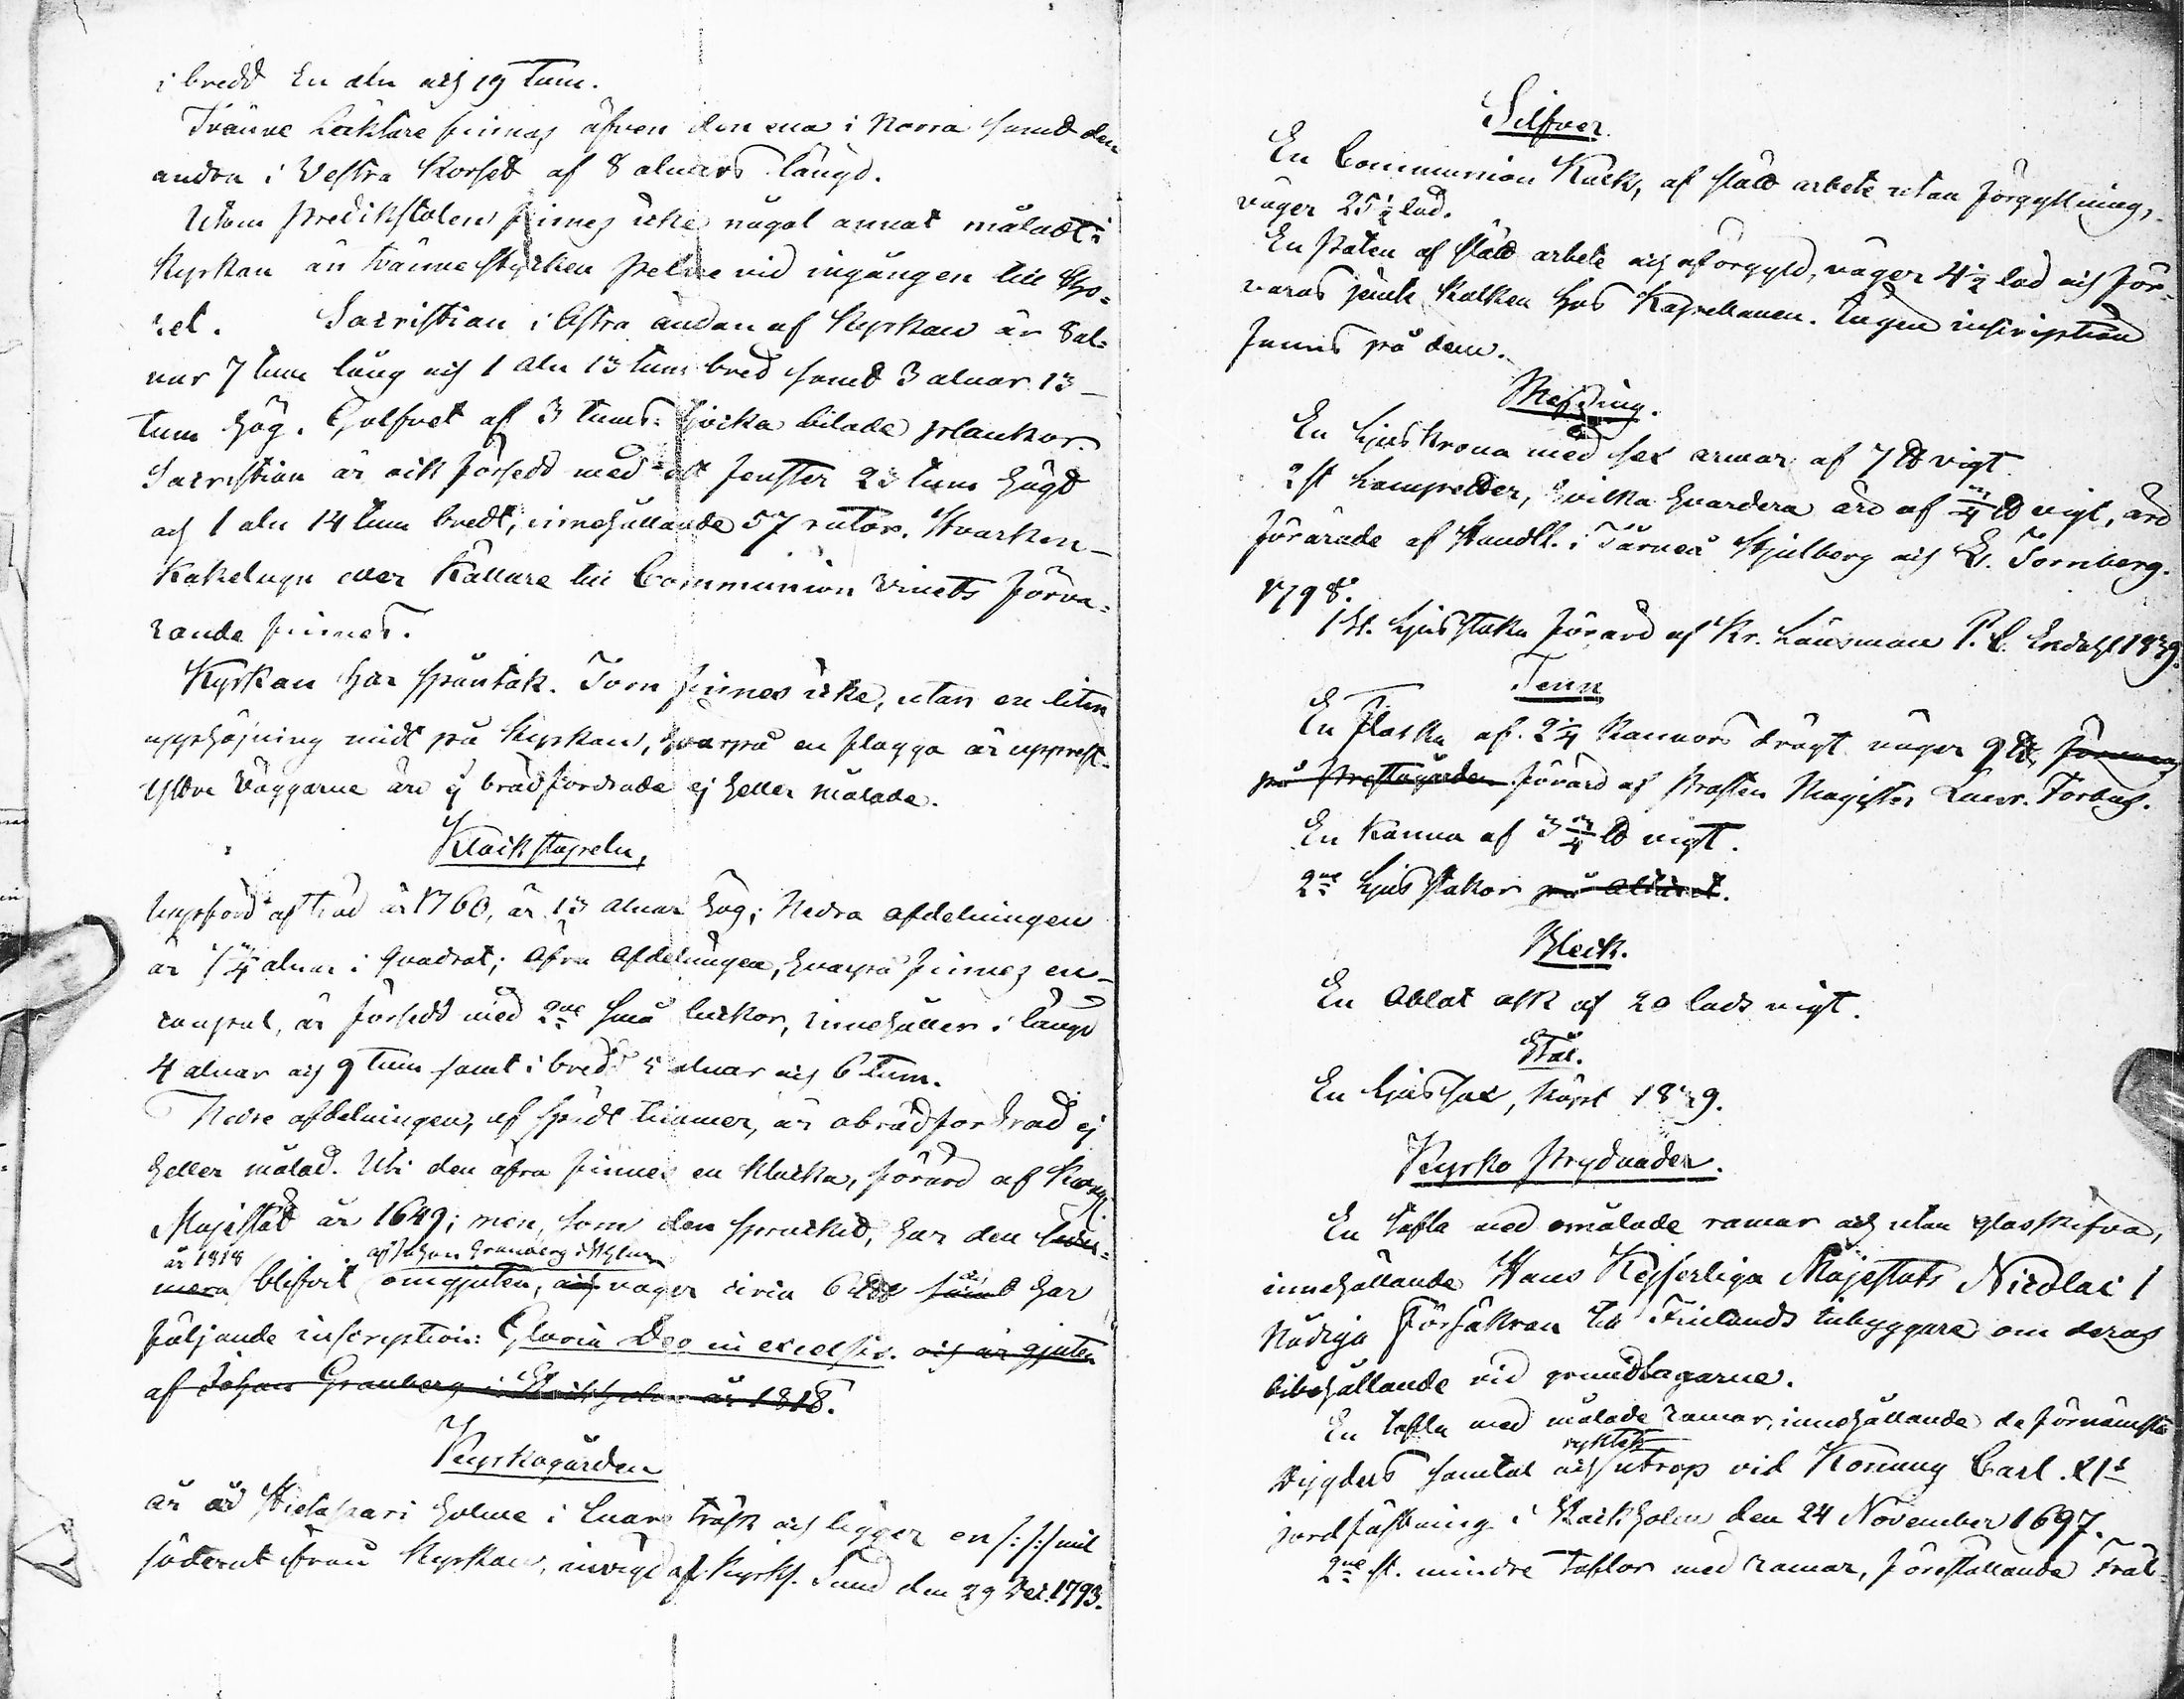 i bredd En aln och 19 tum.
Tvänne Läktare finnas äfven den ena i Norra samt den
andra i Vestra Korset af 8 alnars längd.
Utom Predikstolen finnes icke något annat måladt i
Kyrkan än tvänne stycken pelare vid ingången till Cho-
ret. Sacristian i Östra ändan af Kyrkan är 8 al-
nar 7 tum lång och 1 aln 13 tum bred samt 3 alnar 13
tum hög. Golfvet af 3 tums tjocka bilade plankor.
Sacristian är ock försedd med ett fenster 23 tum högt
och 1 aln 14 tum bredt, innehållande 57 rutor. Hvarken
Kakelugn eller Källare till Communion Vinets förva-
rande finnes.
Kyrkan har spåntak. Torn finnes icke, utan en liten
upphöjning midt på Kyrkan, hvarpå en flagga är upprest.
Yttre Väggarne äro ej brädfordrade ej heller målade.
Klockstapeln,
Uppförd af träd år 1760, är 13 alnar hög; Nedra afdelningen
är 7 3/4 alnar i quadrat; öfra Afdelningen, hvarpå finnes en
är försedd med 2ne små luckor, innehåller i längd
4 alnar och 9 tum samt i bredd 5 alnar och 6 tum.
Nedre afdelningen, af timmer, är obrädfordrad ej
heller målad. Uti den öfra finnes en klocka, förärd af Kongl.
Majestät år 1649; men, som den spruckit, har den seder-
år 1818 af Johan Granberg i Sthlm
mera blifvit omgjuten, och väger circa 6 samt har
följande inscription: Gloria Deo in excelsis. och är gjuten
af Johan Granberg i Stockholm år 1818.
Kyrkogården
är å holme i Enare träsk och ligger en /:/:/ mil
söderut ifrån Kyrkan, invigd af Kyrkh. den 29 Dec. 1793.
Silfver
En Communion Kalk, af slätt arbete utan förgyllning,
väger 25 1/2 lod.
En Paten af slätt arbete och oförgyld, väger 4 1/2 lod och för-
varas jemte Kalken hos Kapellanen. Ingen inscription
finnes på dem.
Messing.
En Ljuskrona med sex armar af 7 ℔ vigt.
2 st Lampetter, hvilka hvardera äro af 3/4 ℔ vigt, äro
förärade af Handl. i Törneå Hjulberg och E. Tornberg.
1798.
1 st. Ljusstaka förärd af Kr. Länsman P. C. Ekdahl 1839.
Tenn
En Flaska af 2 1/4 Kannors drägt väger 9 ℔ förvaras
på Prestgården förärd af Prosten Magister Laur. Forbus.
En Kanna af 3 3/4 ℔ vigt.
2ne Ljusstakar på Altaret.
Bleck.
En Oblat ask af 20 lods vigt.
Stål.
En Ljussax, köpt 1839.
Kyrko Prydnader.
En tafla med omålade ramar och utan glasskifva,
innehållande Hans Kejserliga Majestäts Nicolai I
Nådiga Försäkran till Finlands Inbyggare om deras
bibehållande vid grundlagarne.
En tafla med målade ramar, innehållande de förnämsta
ryktets
Dygders samtal och utrop vid Konung Carl XIs
jordfästning i Stockholm den 24 November 1697.
2ne st. mindre Taflor med ramar, föreställande Fräl-